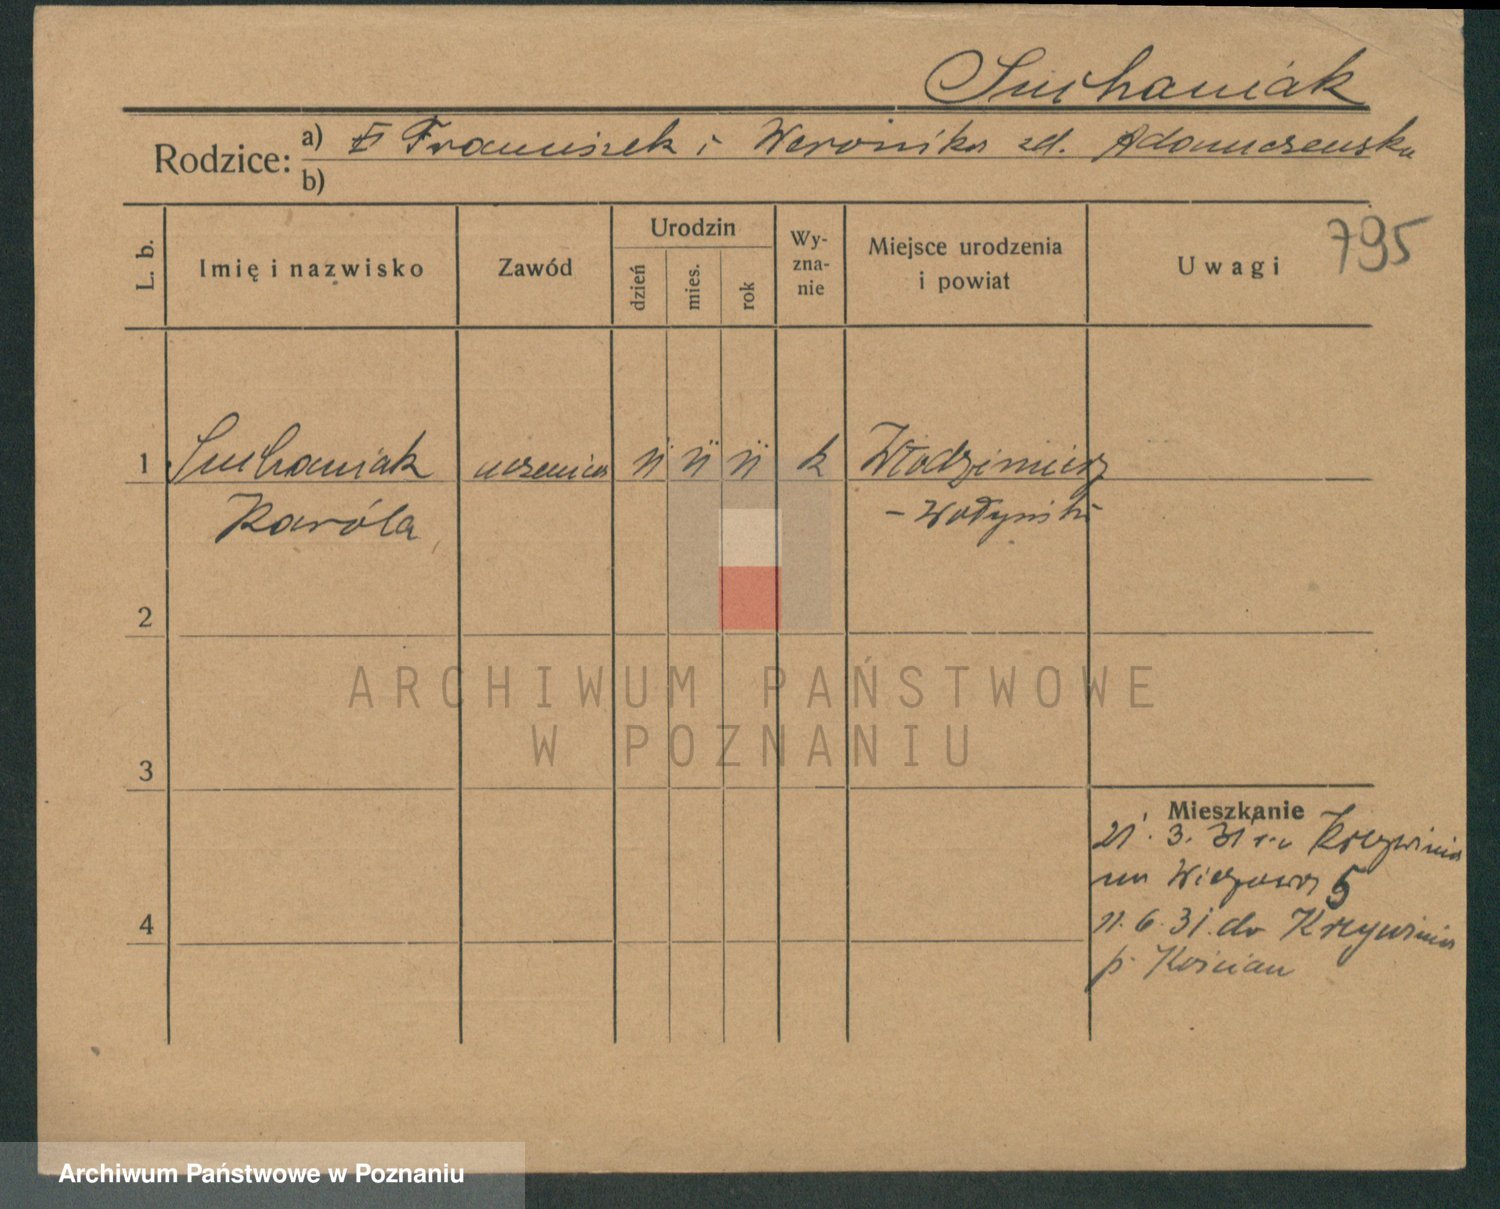 Suchaniak
Rodzice: a) Franciszek i Weronika zd. Adamczewska
b)
795
L. b.
Imię i nazwisko
Zawód
Urodzin
dzień
mies.
rok
Wy-
zna-
nie
Miejsce urodzenia
i powiat
Uwagi
1 Suchaniak uczenica k Włodzimierz
Karóla - Wołyński
2
3
4
Mieszkanie
21. 3. 31 r. Krzywinia
5
11. 6. 31. do Krzywinia
p. Kościan
ARCHIWUM PAŃSTWOWE
W POZNANIU
Archiwum Państwowe w Poznaniu